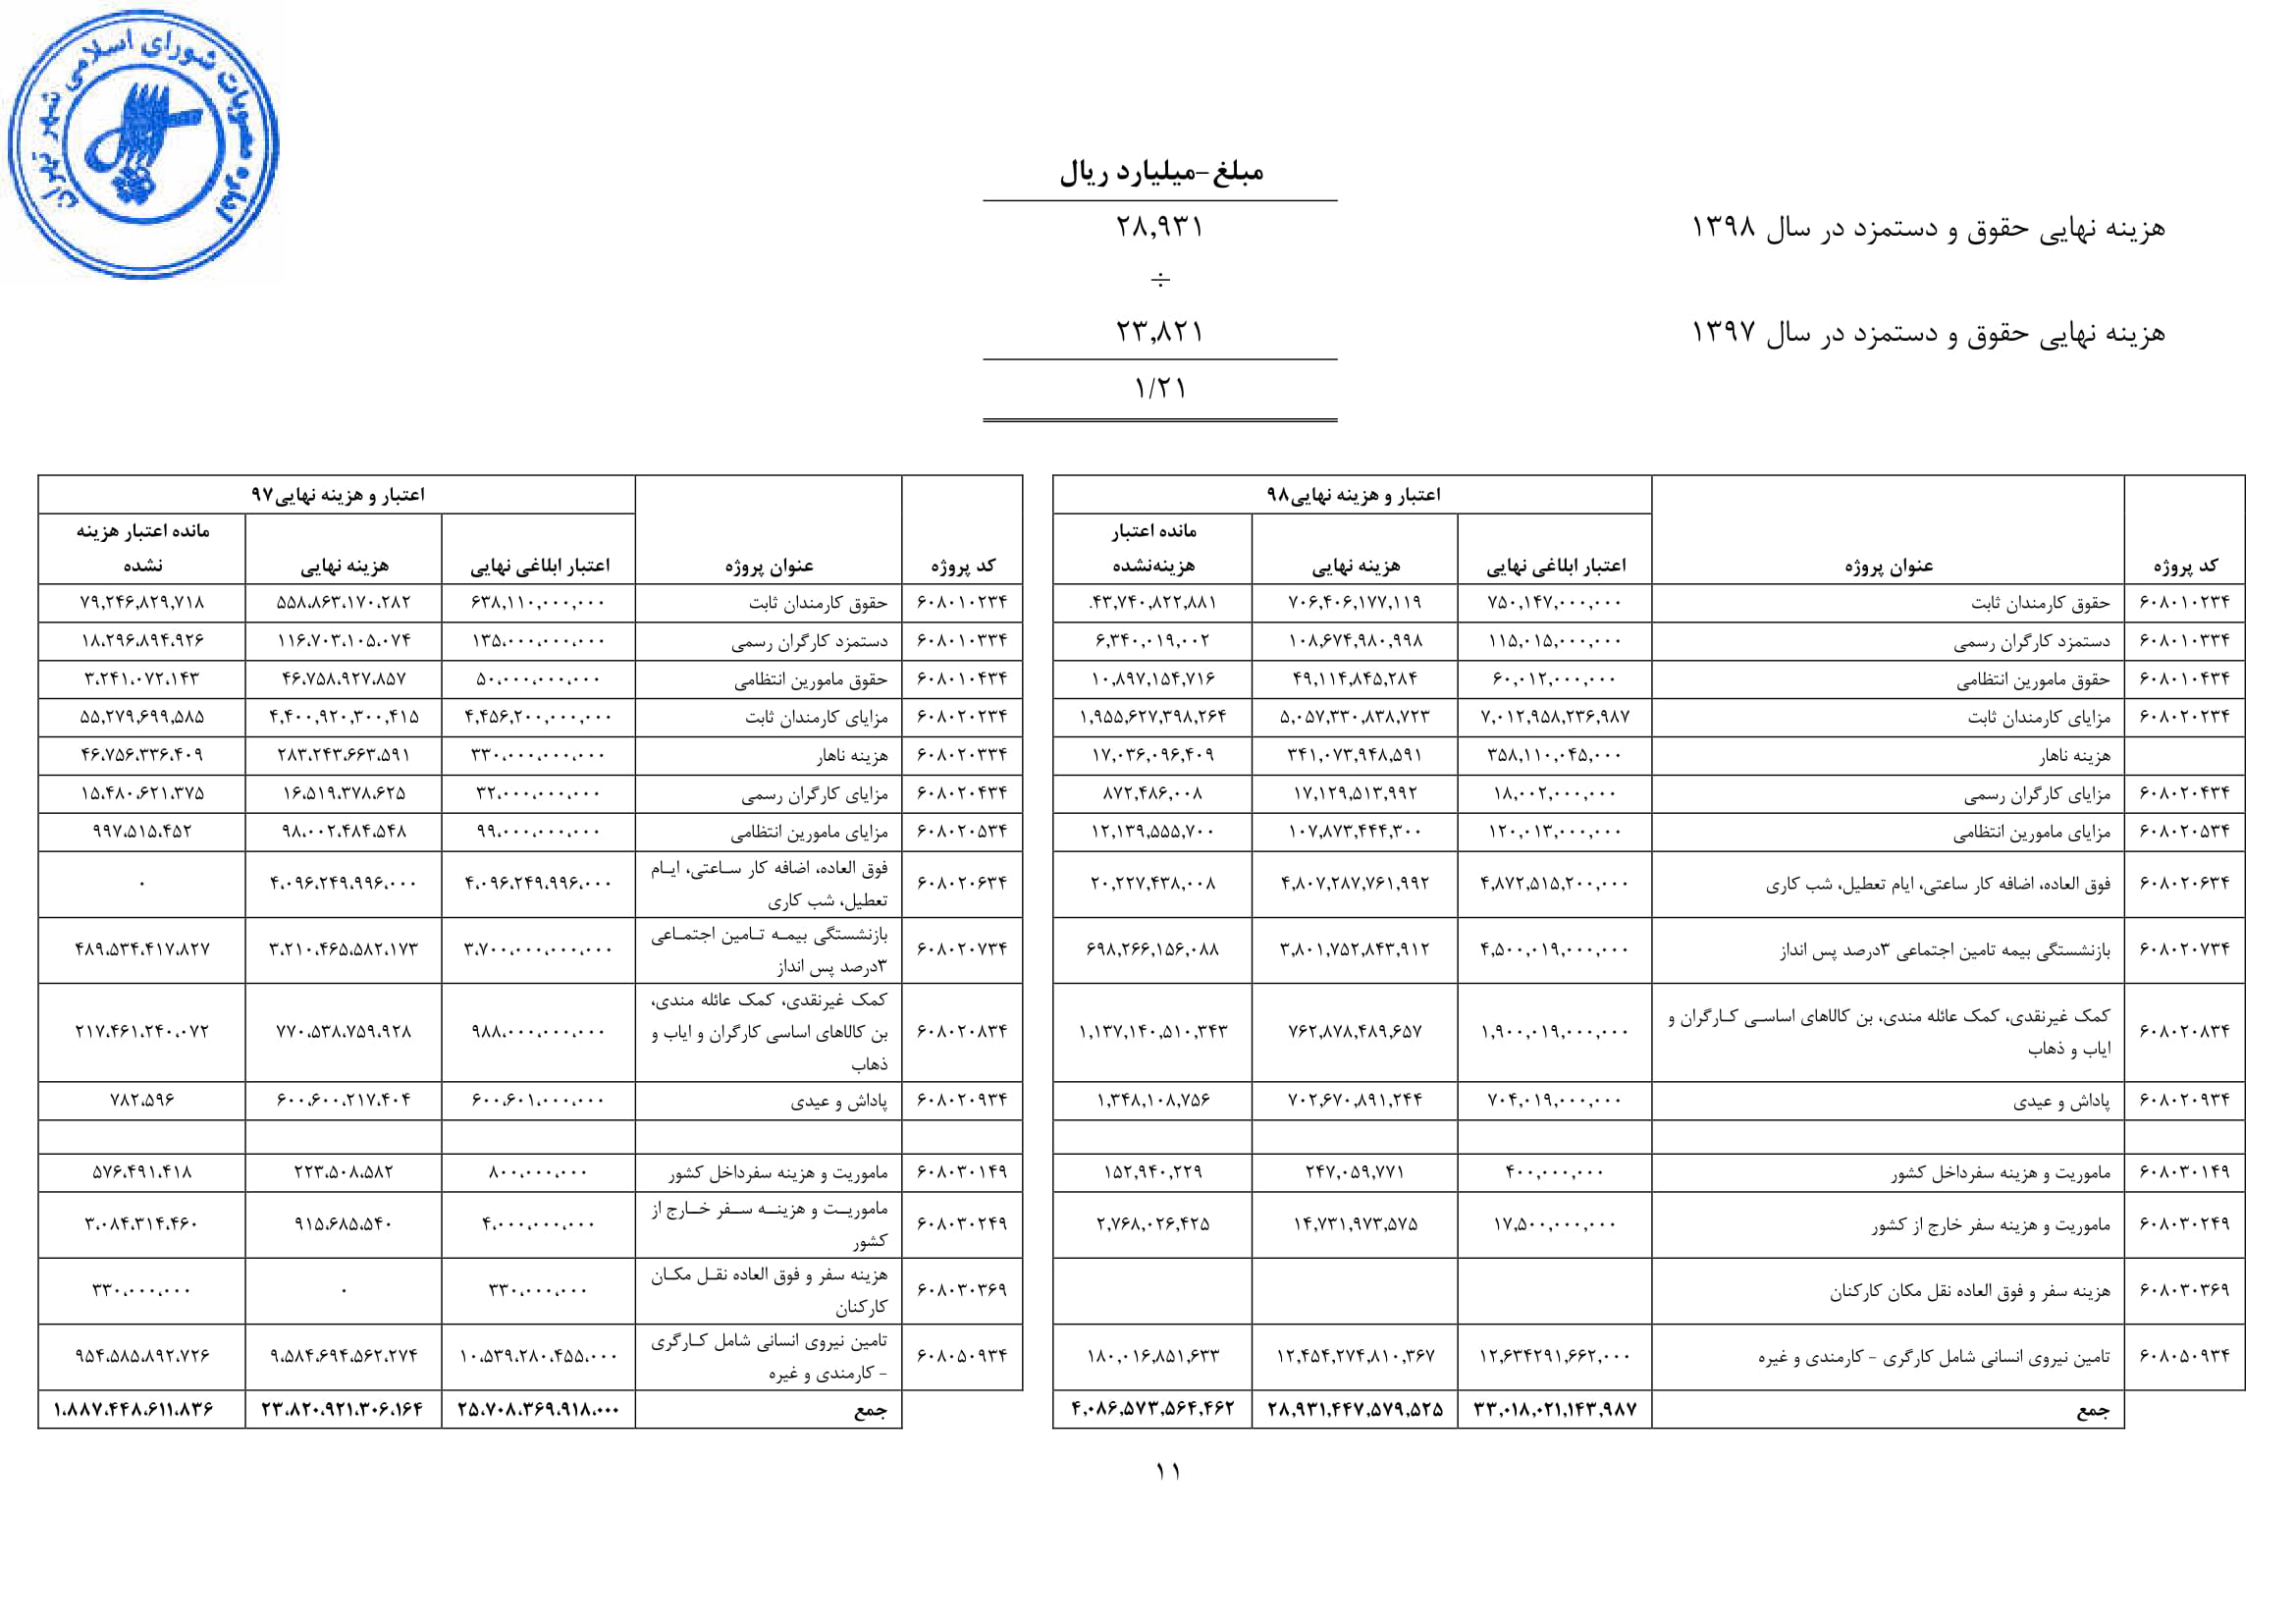 اداره مصوبات شورای اسلامی شهر تهران
مبلغ-میلیارد ریال
هزینه نهایی حقوق و دستمزد در سال ۱۳۹۸ ۲۸,۹۳۱
÷
هزینه نهایی حقوق و دستمزد در سال ۱۳۹۷ ۲۳,۸۲۱
۱/۲۱
کد پروژه عنوان پروژه اعتبار و هزینه نهایی۹۸
اعتبار ابلاغی نهایی هزینه نهایی مانده اعتبار
هزینه‌نشده
۶۰۸۰۱۰۲۳۴ حقوق کارمندان ثابت ۷۵۰,۱۴۷,۰۰۰,۰۰۰ ۷۰۶,۴۰۶,۱۷۷,۱۱۹ ۴۳,۷۴۰,۸۲۲,۸۸۱.
۶۰۸۰۱۰۳۳۴ دستمزد کارگران رسمی ۱۱۵,۰۱۵,۰۰۰,۰۰۰ ۱۰۸,۶۷۴,۹۸۰,۹۹۸ ۶,۳۴۰,۰۱۹,۰۰۲
۶۰۸۰۱۰۴۳۴ حقوق مامورین انتظامی ۶۰,۰۱۲,۰۰۰,۰۰۰ ۴۹,۱۱۴,۸۴۵,۲۸۴ ۱۰,۸۹۷,۱۵۴,۷۱۶
۶۰۸۰۲۰۲۳۴ مزایای کارمندان ثابت ۷,۰۱۲,۹۵۸,۲۳۶,۹۸۷ ۵,۰۵۷,۳۳۰,۸۳۸,۷۲۳ ۱,۹۵۵,۶۲۷,۳۹۸,۲۶۴
هزینه ناهار ۳۵۸,۱۱۰,۰۴۵,۰۰۰ ۳۴۱,۰۷۳,۹۴۸,۵۹۱ ۱۷,۰۳۶,۰۹۶,۴۰۹
۶۰۸۰۲۰۴۳۴ مزایای کارگران رسمی ۱۸,۰۰۲,۰۰۰,۰۰۰ ۱۷,۱۲۹,۵۱۳,۹۹۲ ۸۷۲,۴۸۶,۰۰۸
۶۰۸۰۲۰۵۳۴ مزایای مامورین انتظامی ۱۲۰,۰۱۳,۰۰۰,۰۰۰ ۱۰۷,۸۷۳,۴۴۴,۳۰۰ ۱۲,۱۳۹,۵۵۵,۷۰۰
۶۰۸۰۲۰۶۳۴ فوق العاده، اضافه کار ساعتی، ایام تعطیل، شب کاری ۴,۸۷۲,۵۱۵,۲۰۰,۰۰۰ ۴,۸۰۷,۲۸۷,۷۶۱,۹۹۲ ۲۰,۲۲۷,۴۳۸,۰۰۸
۶۰۸۰۲۰۷۳۴ بازنشستگی بیمه تامین اجتماعی ۳درصد پس انداز ۴,۵۰۰,۰۱۹,۰۰۰,۰۰۰ ۳,۸۰۱,۷۵۲,۸۴۳,۹۱۲ ۶۹۸,۲۶۶,۱۵۶,۰۸۸
۶۰۸۰۲۰۸۳۴ کمک غیرنقدی، کمک عائله مندی، بن کالاهای اساسی کارگران و
ایاب و ذهاب ۱,۹۰۰,۰۱۹,۰۰۰,۰۰۰ ۷۶۲,۸۷۸,۴۸۹,۶۵۷ ۱,۱۳۷,۱۴۰,۵۱۰,۳۴۳
۶۰۸۰۲۰۹۳۴ پاداش و عیدی ۷۰۴,۰۱۹,۰۰۰,۰۰۰ ۷۰۲,۶۷۰,۸۹۱,۲۴۴ ۱,۳۴۸,۱۰۸,۷۵۶
۶۰۸۰۳۰۱۴۹ ماموریت و هزینه سفرداخل کشور ۴۰۰,۰۰۰,۰۰۰ ۲۴۷,۰۵۹,۷۷۱ ۱۵۲,۹۴۰,۲۲۹
۶۰۸۰۳۰۲۴۹ ماموریت و هزینه سفر خارج از کشور ۱۷,۵۰۰,۰۰۰,۰۰۰ ۱۴,۷۳۱,۹۷۳,۵۷۵ ۲,۷۶۸,۰۲۶,۴۲۵
۶۰۸۰۳۰۳۶۹ هزینه سفر و فوق العاده نقل مکان کارکنان
۶۰۸۰۵۰۹۳۴ تامین نیروی انسانی شامل کارگری - کارمندی و غیره ۱۲,۶۳۴۲۹۱,۶۶۲,۰۰۰ ۱۲,۴۵۴,۲۷۴,۸۱۰,۳۶۷ ۱۸۰,۰۱۶,۸۵۱,۶۳۳
جمع ۳۳,۰۱۸,۰۲۱,۱۴۳,۹۸۷ ۲۸,۹۳۱,۴۴۷,۵۷۹,۵۲۵ ۴,۰۸۶,۵۷۳,۵۶۴,۴۶۲
کد پروژه عنوان پروژه اعتبار و هزینه نهایی۹۷
اعتبار ابلاغی نهایی هزینه نهایی مانده اعتبار هزینه
نشده
۶۰۸۰۱۰۲۳۴ حقوق کارمندان ثابت ۶۳۸,۱۱۰,۰۰۰,۰۰۰ ۵۵۸،۸۶۳،۱۷۰،۲۸۲ ۷۹,۲۴۶,۸۲۹,۷۱۸
۶۰۸۰۱۰۳۳۴ دستمزد کارگران رسمی ۱۳۵،۰۰۰،۰۰۰،۰۰۰ ۱۱۶،۷۰۳،۱۰۵،۰۷۴ ۱۸،۲۹۶،۸۹۴،۹۲۶
۶۰۸۰۱۰۴۳۴ حقوق مامورین انتظامی ۵۰،۰۰۰،۰۰۰،۰۰۰ ۴۶،۷۵۸،۹۲۷،۸۵۷ ۳،۲۴۱،۰۷۲،۱۴۳
۶۰۸۰۲۰۲۳۴ مزایای کارمندان ثابت ۴,۴۵۶,۲۰۰,۰۰۰,۰۰۰ ۴,۴۰۰,۹۲۰,۳۰۰,۴۱۵ ۵۵,۲۷۹,۶۹۹,۵۸۵
۶۰۸۰۲۰۳۳۴ هزینه ناهار ۳۳۰،۰۰۰،۰۰۰،۰۰۰ ۲۸۳،۲۴۳،۶۶۳،۵۹۱ ۴۶،۷۵۶،۳۳۶،۴۰۹
۶۰۸۰۲۰۴۳۴ مزایای کارگران رسمی ۳۲،۰۰۰،۰۰۰،۰۰۰ ۱۶،۵۱۹،۳۷۸،۶۲۵ ۱۵،۴۸۰،۶۲۱،۳۷۵
۶۰۸۰۲۰۵۳۴ مزایای مامورین انتظامی ۹۹،۰۰۰،۰۰۰،۰۰۰ ۹۸،۰۰۲،۴۸۴،۵۴۸ ۹۹۷،۵۱۵،۴۵۲
۶۰۸۰۲۰۶۳۴ فوق العاده، اضافه کار ساعتی، ایام
تعطیل، شب کاری ۴،۰۹۶،۲۴۹،۹۹۶،۰۰۰ ۴،۰۹۶،۲۴۹،۹۹۶،۰۰۰ ۰
۶۰۸۰۲۰۷۳۴ بازنشستگی بیمه تامین اجتماعی
۳درصد پس انداز ۳،۷۰۰،۰۰۰،۰۰۰،۰۰۰ ۳،۲۱۰،۴۶۵،۵۸۲،۱۷۳ ۴۸۹،۵۳۴،۴۱۷،۸۲۷
۶۰۸۰۲۰۸۳۴ کمک غیرنقدی، کمک عائله مندی،
بن کالاهای اساسی کارگران و ایاب و
ذهاب ۹۸۸،۰۰۰،۰۰۰،۰۰۰ ۷۷۰،۵۳۸،۷۵۹،۹۲۸ ۲۱۷،۴۶۱،۲۴۰،۰۷۲
۶۰۸۰۲۰۹۳۴ پاداش و عیدی ۶۰۰،۶۰۱،۰۰۰،۰۰۰ ۶۰۰،۶۰۰،۲۱۷،۴۰۴ ۷۸۲،۵۹۶
۶۰۸۰۳۰۱۴۹ ماموریت و هزینه سفرداخل کشور ۸۰۰،۰۰۰،۰۰۰ ۲۲۳،۵۰۸،۵۸۲ ۵۷۶،۴۹۱،۴۱۸
۶۰۸۰۳۰۲۴۹ ماموریت و هزینه سفر خارج از
کشور ۴،۰۰۰،۰۰۰،۰۰۰ ۹۱۵،۶۸۵،۵۴۰ ۳،۰۸۴،۳۱۴،۴۶۰
۶۰۸۰۳۰۳۶۹ هزینه سفر و فوق العاده نقل مکان
کارکنان ۳۳۰،۰۰۰،۰۰۰ ۰ ۳۳۰،۰۰۰،۰۰۰
۶۰۸۰۵۰۹۳۴ تامین نیروی انسانی شامل کارگری
- کارمندی و غیره ۱۰،۵۳۹،۲۸۰،۴۵۵،۰۰۰ ۹،۵۸۴،۶۹۴،۵۶۲،۲۷۴ ۹۵۴،۵۸۵،۸۹۲،۷۲۶
جمع ۲۵،۷۰۸،۳۶۹،۹۱۸،۰۰۰ ۲۳،۸۲۰،۹۲۱،۳۰۶،۱۶۴ ۱،۸۸۷،۴۴۸،۶۱۱،۸۳۶
۱۱